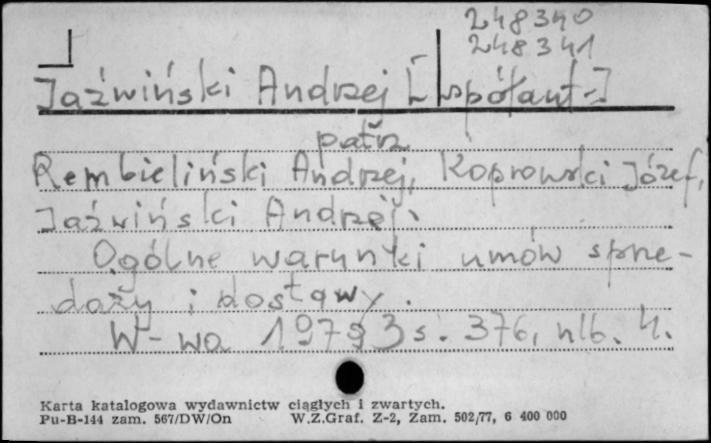 248340
248341
Jaźwiński Andrzej [współaut.]
patrz
Rembieliński Andrzej, Koprowski Józef,
Jaźwiński Andrzej:
Ogólne warunki umów sprze-
daży i dostawy.
W-wa 1979 s. 376, nlb. 4.
Karta katalogowa wydawnictw ciągłych i zwartych.
Pu-B-144 zam. 567/DW/On W.Z.Graf. Z-2, Zam. 502/77, 6 400 000